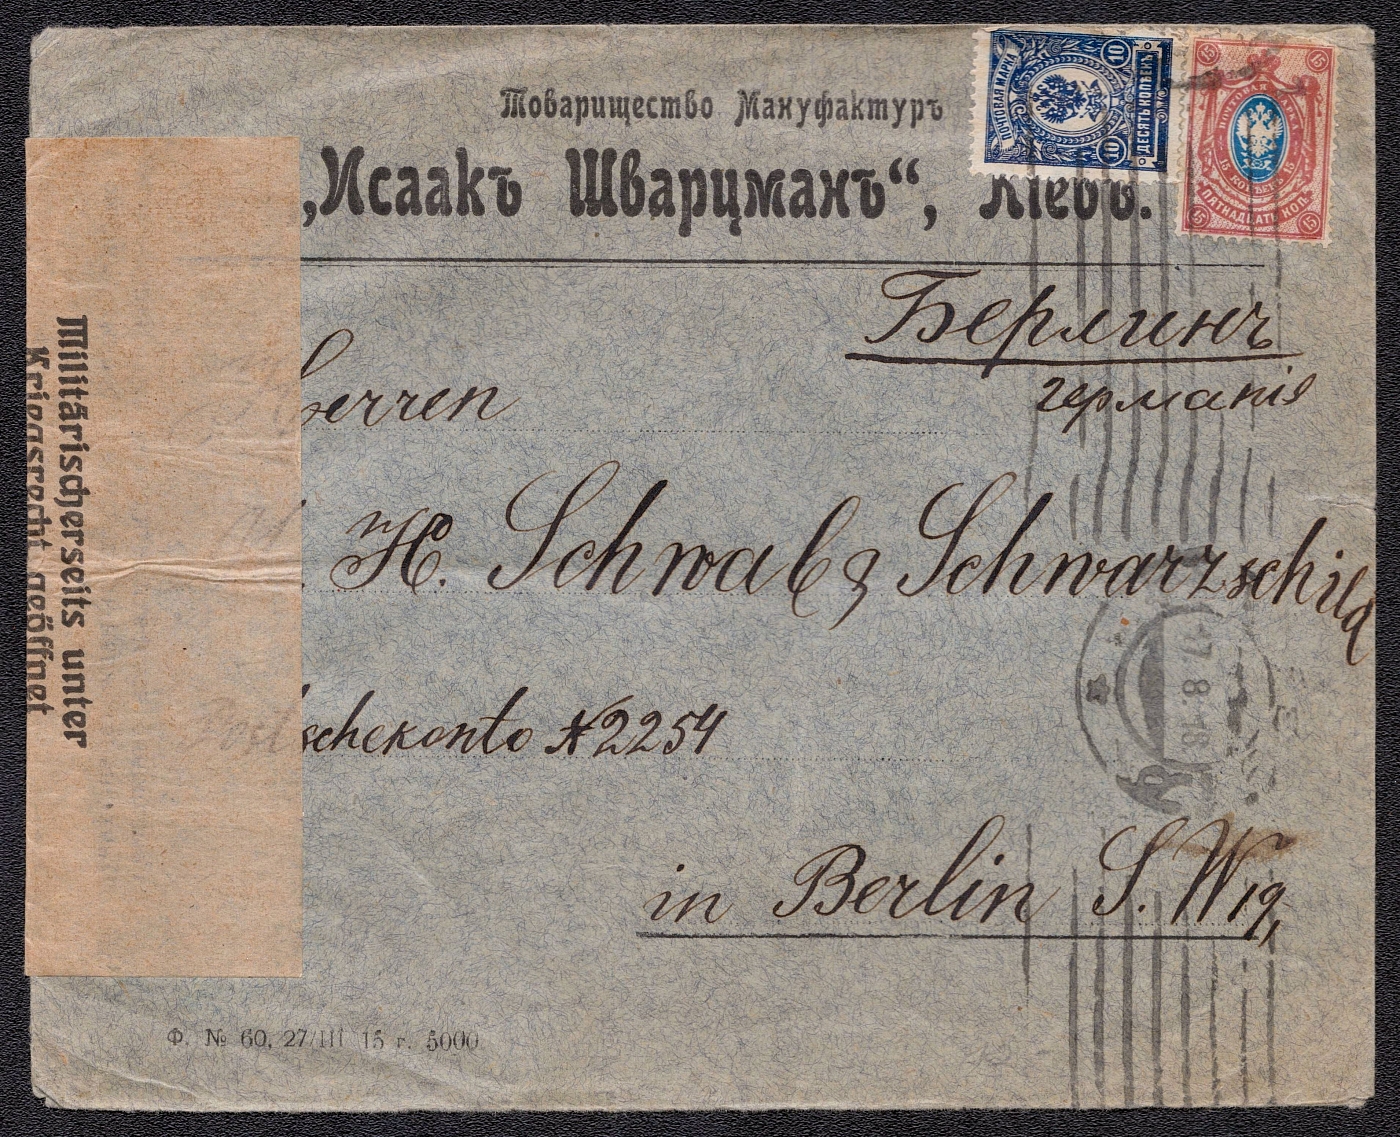 Товарищество Мануфактуръ
„Исаакъ Шварцманъ“, Кіевъ.
ПОЧТОВАЯ МАРКА
10
10
ДЕСЯТЬ КОПѢЕКЪ
15
15
ПОЧТОВАЯ МАРКА
15 КОПѢЕКЪ 15
ПЯТНАДЦАТЬ КОП.
15
15
Берлинъ
Германія
Herren
H. Schwab & Schwarzschild
Postscheckonto № 2254
in Berlin S. W 19,
Militärischerseits unter
Kriegsrecht geöffnet
8.18
Ф. № 60, 27/III 15 г. 5000